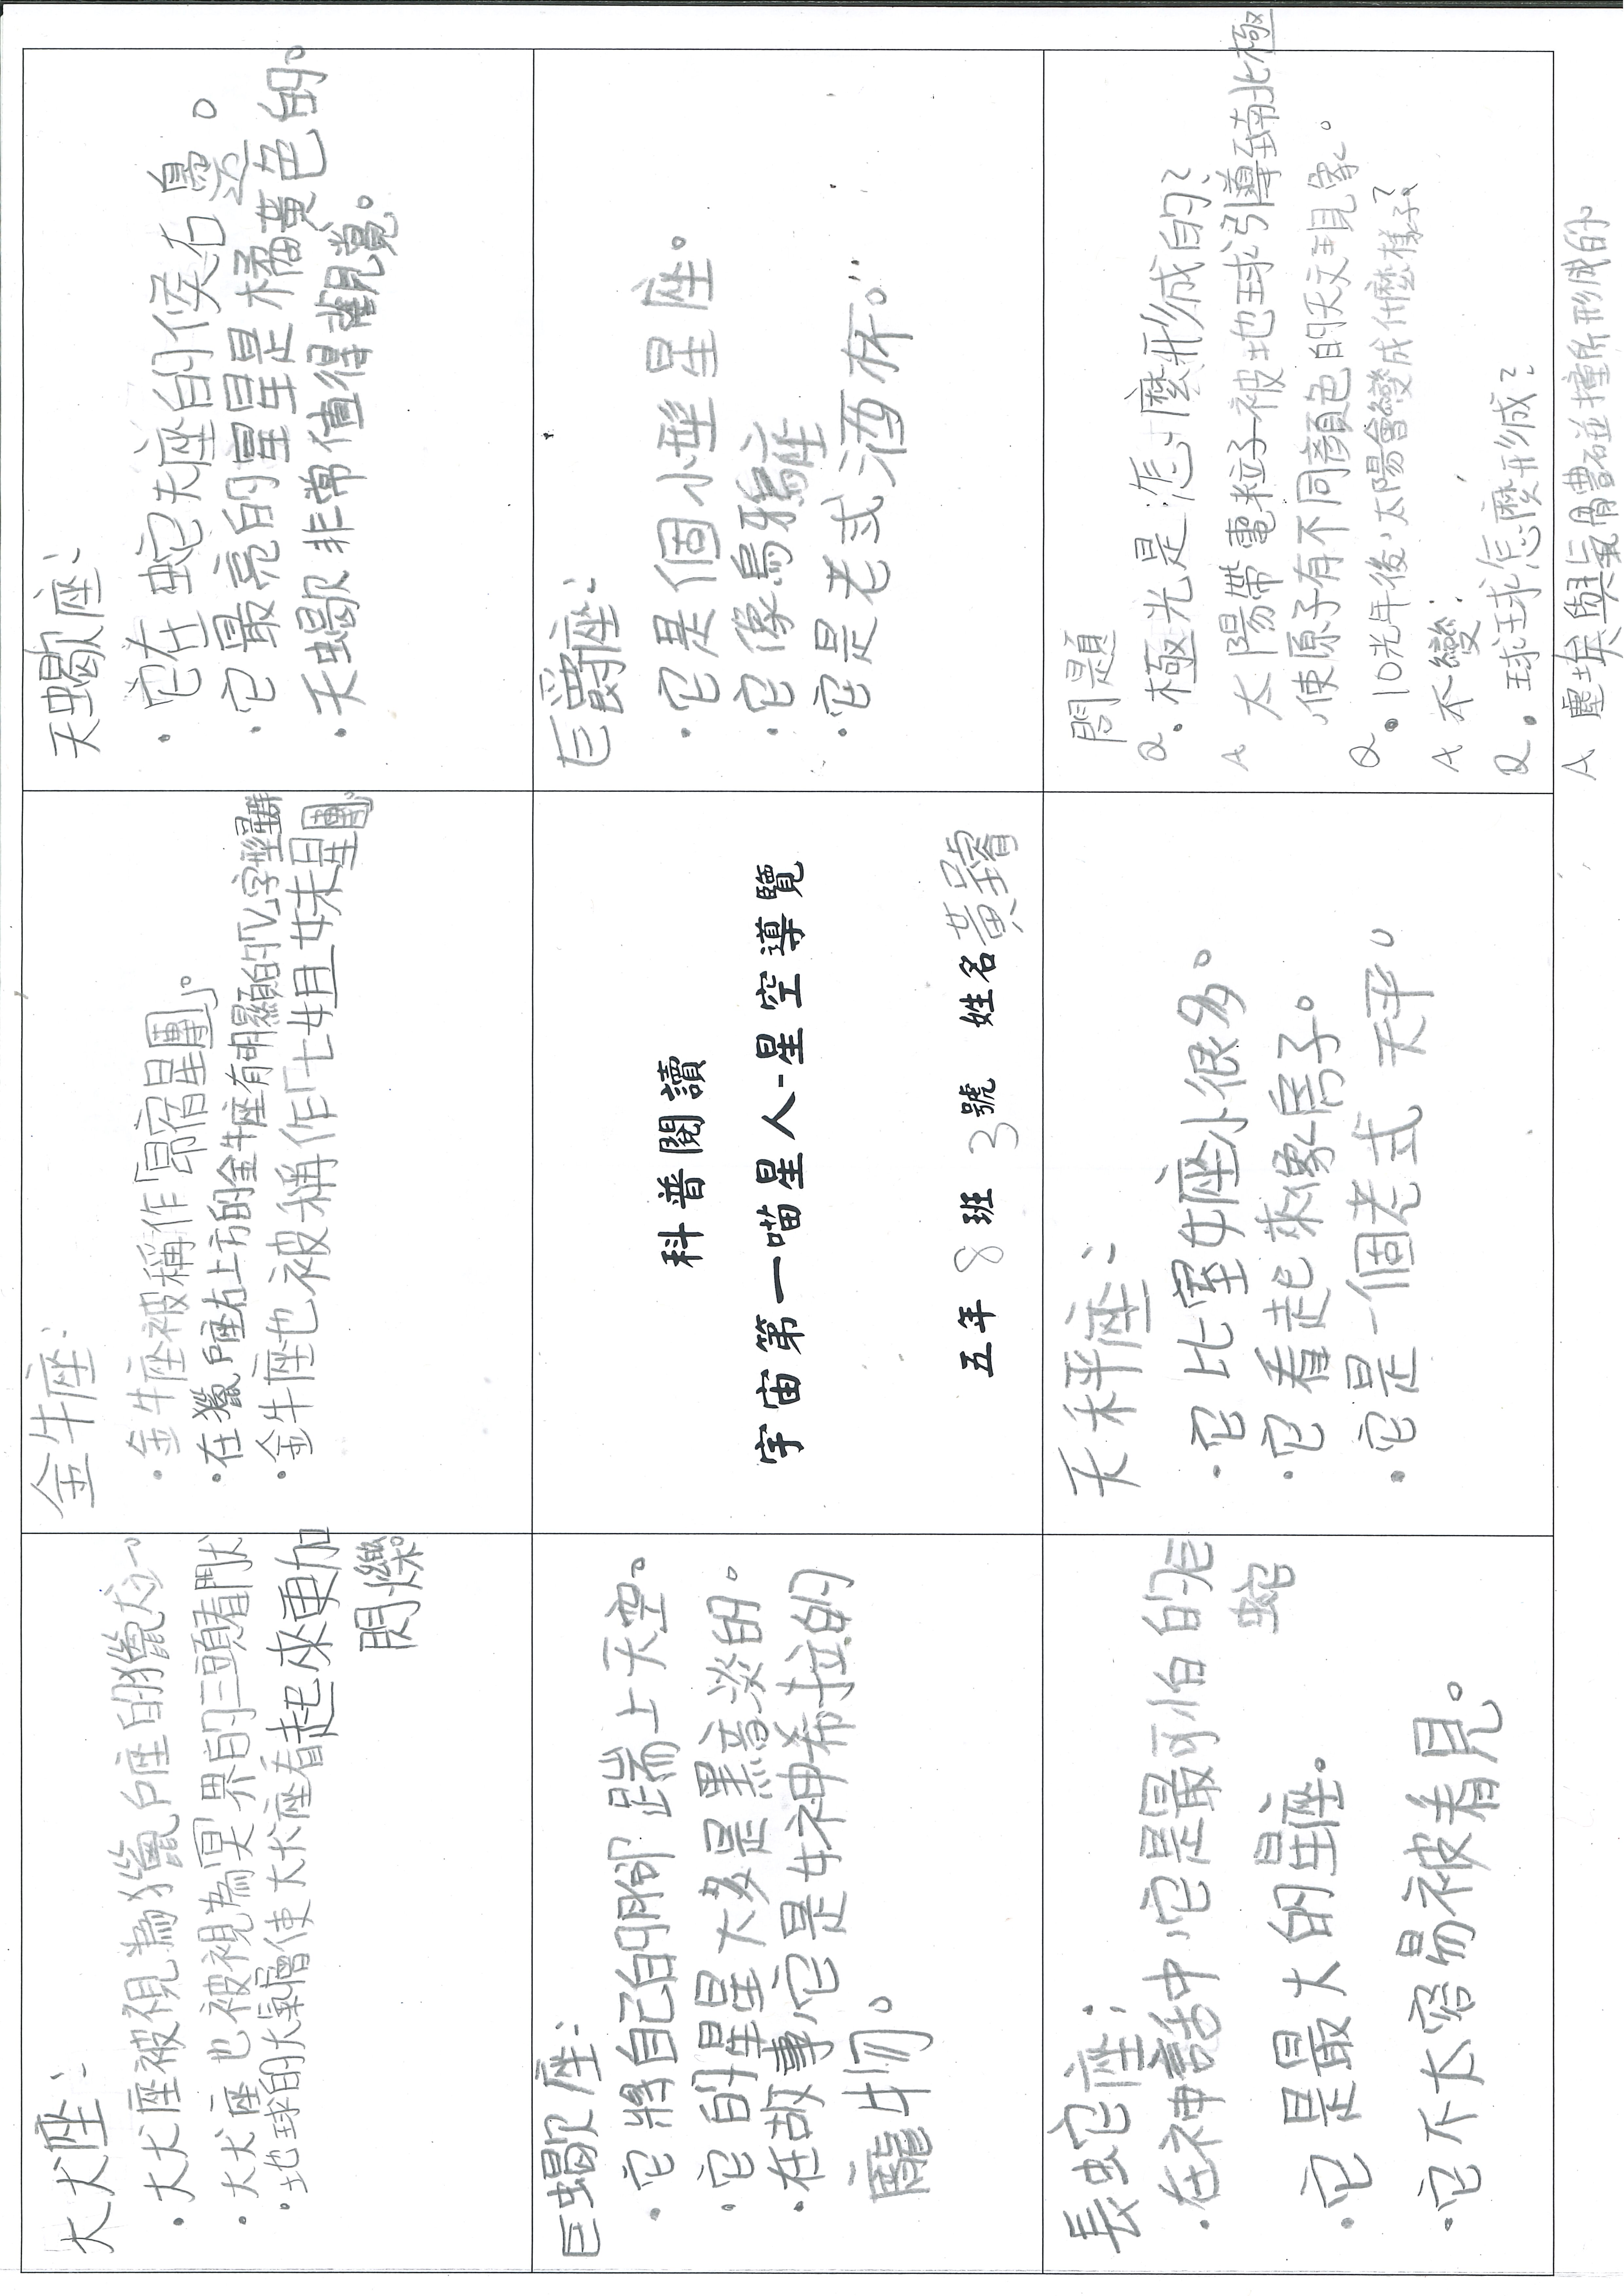 大犬座:
·大犬座被視為獵戶座的獵犬之一。
·大犬座也被視為冥界的三頭看門犬
·地球的大氣層使大犬座看起來更加
閃爍。
金牛座:
·金牛座被稱作「昴宿星團」。
·在獵戶座右上方的金牛座有明顯的「V」字型星群
·金牛座也被稱作「七姐妹星團」。
天蠍座:
·它在蛇夫座的後右邊。
·它最亮的星星是橘黃色的。
·天蠍非常值得觀覺。
巨蠍座:
·它將自己的腳踹上天空。
·它的星星大多是黑暗淡的。
·在故事,它是女神希拉的
寵物。
科普閱讀
宇宙第一喵星人-星空導覽
五年8班3號 姓名黃
巨爵座:
·它是個小型星座。
·它像烏鴉座
·它是老式酒杯。
長蛇座:
·在神話中,它是最可怕的
蛇
·它是最大的星座。
·它不太容易被看見。
天秤座:
·它比室女座小很多。
·它看起來像房子。
·它是一個老式天平。
問題
Q.極光是怎麼形成的?
A 太陽帶電粒子被地球引導至南北極
,使原子有不同顏色的天文現象。
Q.10光年後,太陽會變成什麼樣子?
A 不變!
Q.球球怎麼形成?
A 塵埃與氣體碰撞所形成的